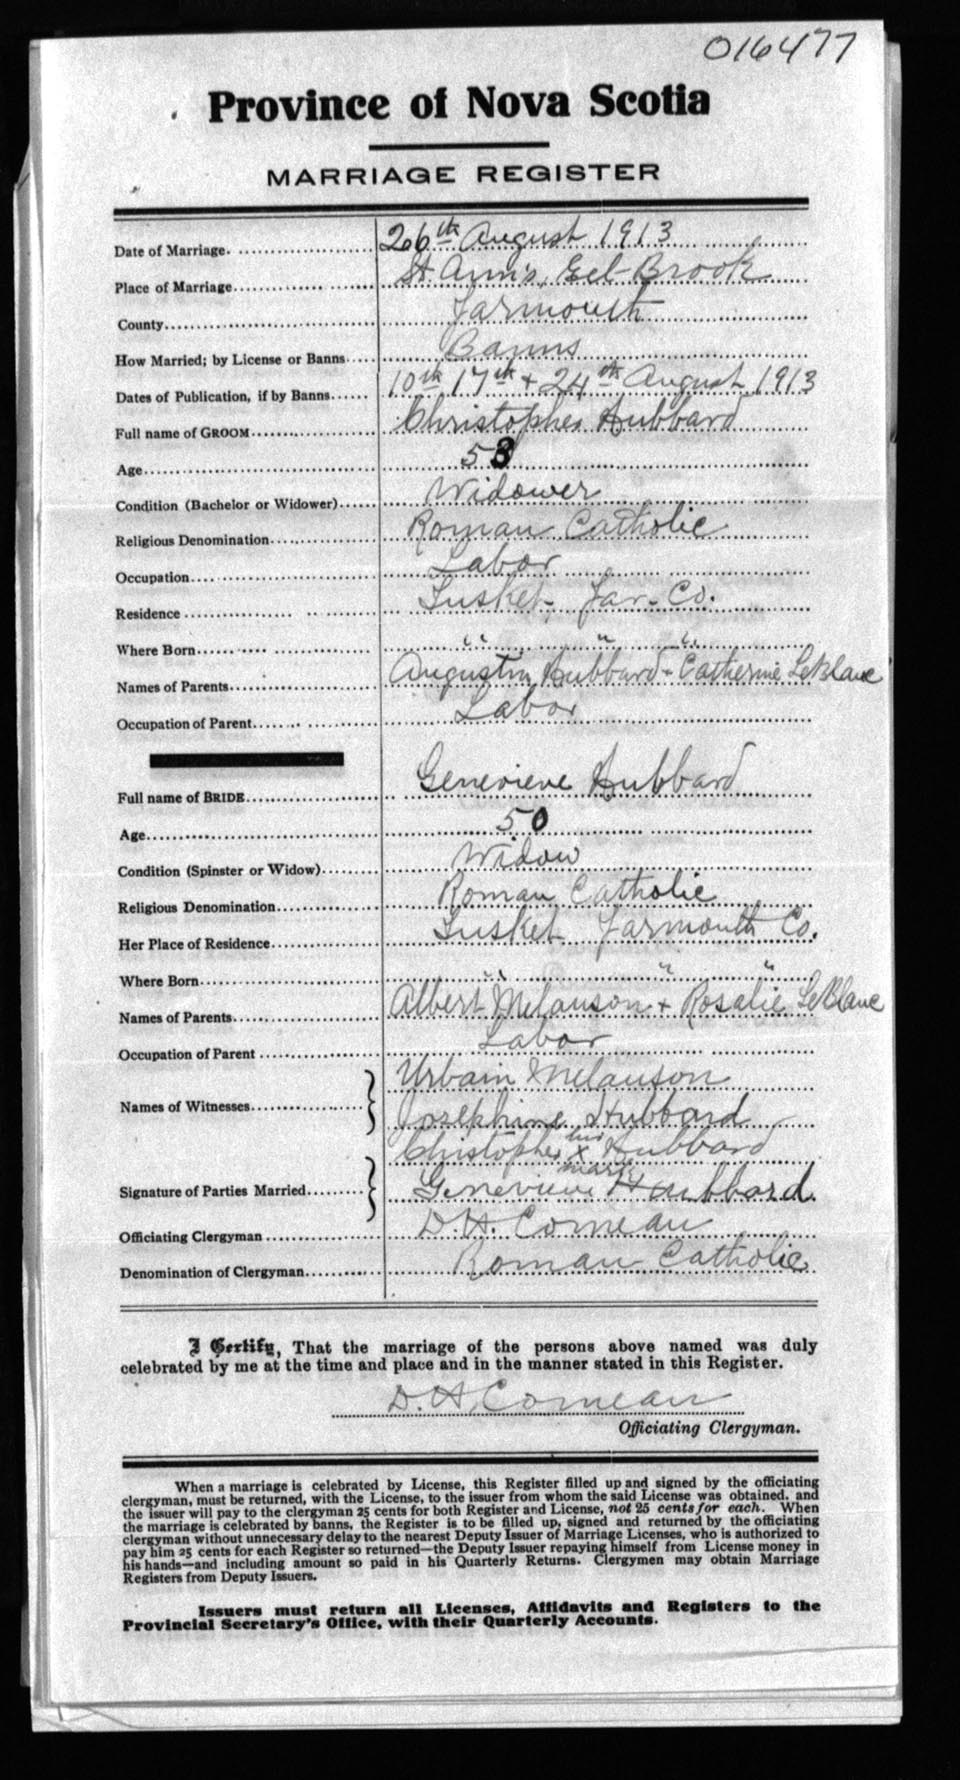 016477
Province of Nova Scotia
MARRIAGE REGISTER
Date of Marriage. 26th August 1913
Place of Marriage St. Ann's, Eel-Brook
County Yarmouth
How Married; by License or Banns Banns
Dates of Publication, if by Banns 10th 17th + 24th August 1913
Full name of GROOM Christopher Hubbard
Age 53
Condition (Bachelor or Widower) Widower
Religious Denomination Roman Catholic
Occupation Labor
Residence Tusket, Yar. Co.
Where Born " " "
Names of Parents Augustin Hubbard - Catherine LeBlanc
Occupation of Parent Labor
Full name of BRIDE Genevieve Hubbard
Age 50
Condition (Spinster or Widow) Widow
Religious Denomination Roman Catholic
Her Place of Residence Tusket Yarmouth Co.
Where Born " " "
Names of Parents Albert Melanson + Rosalie LeBlanc
Occupation of Parent Labor
Names of Witnesses Urbain Melanson
Josephine Hubbard
Christopher his x mark Hubbard
Signature of Parties Married Genevieve Hubbard
Officiating Clergyman D.H. Comeau
Denomination of Clergyman Roman Catholic
I Certify, That the marriage of the persons above named was duly
celebrated by me at the time and place and in the manner stated in this Register.
D. H. Comeau
Officiating Clergyman.
When a marriage is celebrated by License, this Register filled up and signed by the officiating
clergyman, must be returned, with the License, to the issuer from whom the said License was obtained, and
the issuer will pay to the clergyman 25 cents for both Register and License, not 25 cents for each. When
the marriage is celebrated by banns, the Register is to be filled up, signed and returned by the officiating
clergyman without unnecessary delay to the nearest Deputy Issuer of Marriage Licenses, who is authorized to
pay him 25 cents for each Register so returned—the Deputy Issuer repaying himself from License money in
his hands—and including amount so paid in his Quarterly Returns. Clergymen may obtain Marriage
Registers from Deputy Issuers.
Issuers must return all Licenses, Affidavits and Registers to the
Provincial Secretary's Office, with their Quarterly Accounts.